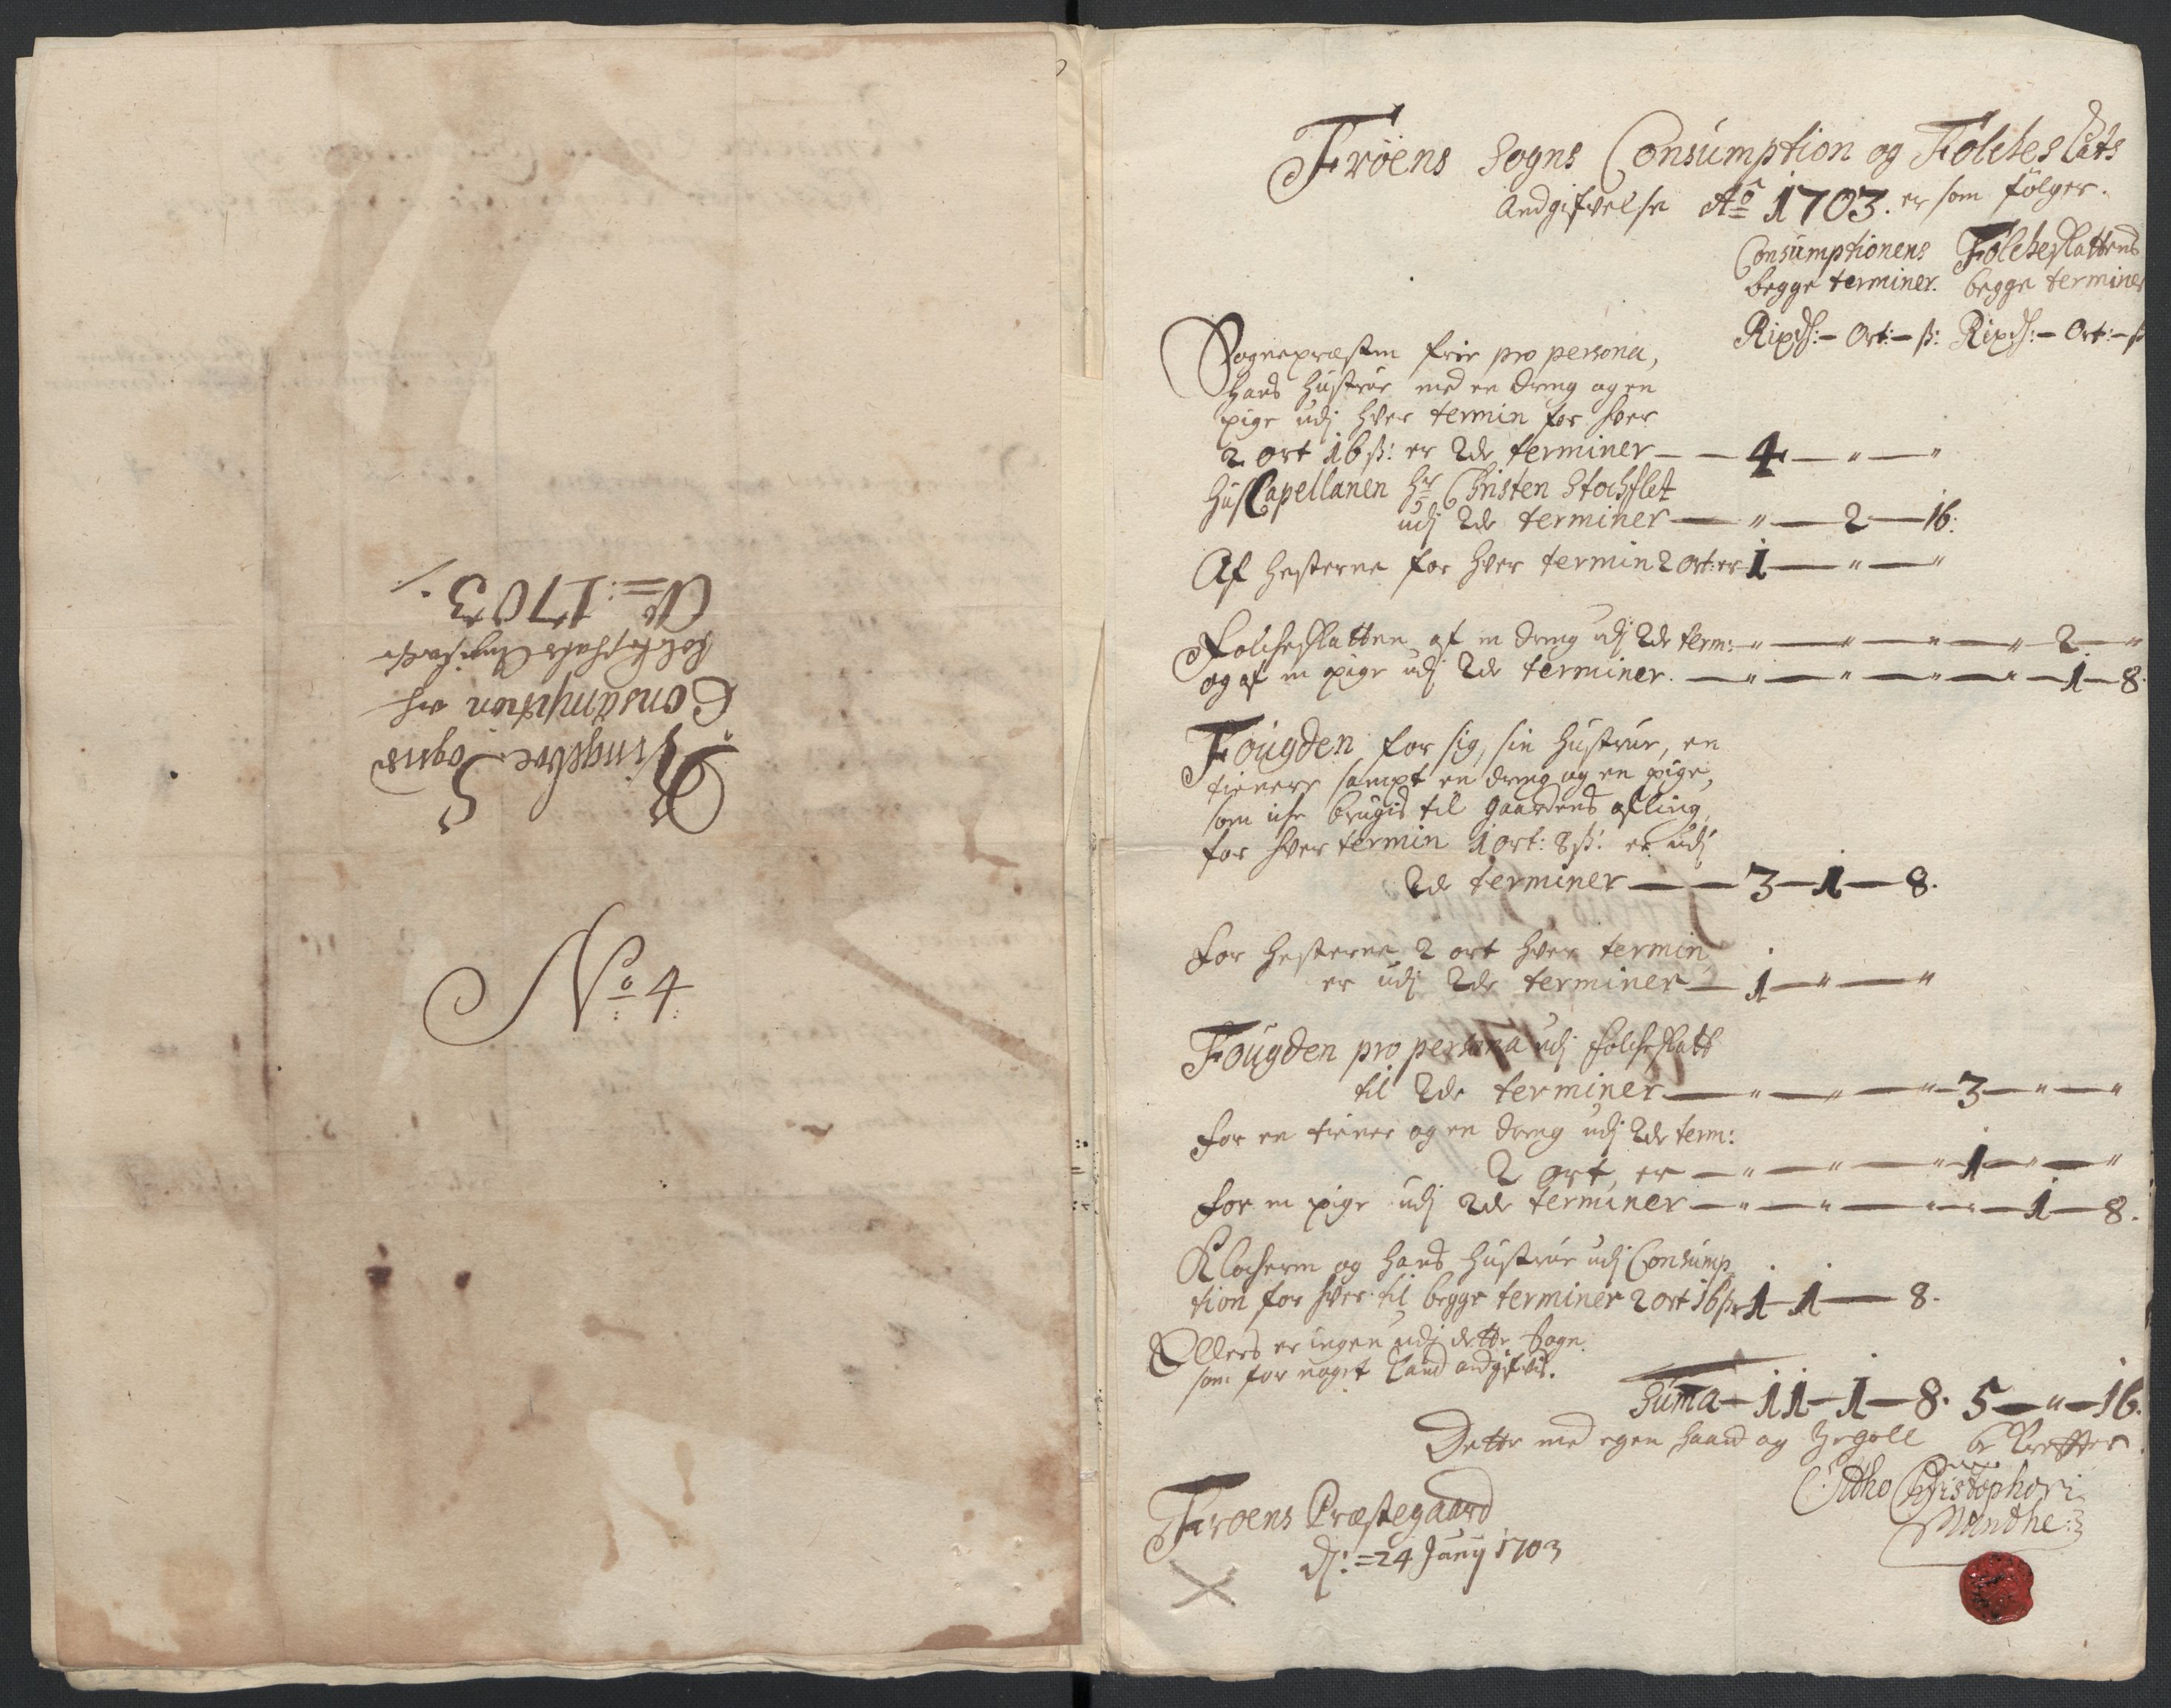 Ringeboe Sogns
Consumption och
folcheschats Angifvelse
Ao: 1703.
No 4.
Frøens Sogns Consumption og Folcheskats
Andgifvelse Ao 1703. er som følger.
Consumptionens Folcheskattens
begge terminer. begge terminer
Rixds:- Ort:- ß: Rixds:- Ort:- ß
Sognepræsten frie pro persona,
hans hustrue med en dreng og en
pige udj hver termin for hver
2 ort 16 ß: er 2de terminer — — 4 — " — "
HusCapellanen hr Christen Stochflet
udj 2de terminer — " — 2 — 16.
Af hesterne for hver termin 2 ort: er 1 — " — "
Folcheskatten af en dreng udj 2de term: " — " — " — " 2 — "
og af en pige udj 2de terminer. — " — " — " — " — 1 — 8.
Fougden for sig, sin hustrue, en
tienere sampt en dreng og en pige,
som iche brugis til gaardens afling
for hver termin 1 ort: 8 ß: er udj
2de terminer — — 3 — 1 — 8.
for hesterne 2 ort hver termin
er udj 2de terminer — 1 — " — "
Fougden pro persona udj folcheskatt
til 2de terminer — " — " — " — 3 — " — "
for en tiener og en dreng udj 2de term:
2 ort, er — " — " — " — 1 — " — "
for en pige udj 2de terminer — " — " — " — " — 1 — 8.
Klocheren og hans hustrue udj Consump
tion for hver til begge terminer 2 ort 16 ß 1 — 1 — 8.
Ellers er ingen udj dette sogn
som for noget kand andgifvis.
Suma — 11 — 1 — 8. 5 — " — 16.
Dette med egen haand og Zegell bekrefter.
Otho Christophori
Munthe
Froens Præstegaard
d: = 24 Junij 1703